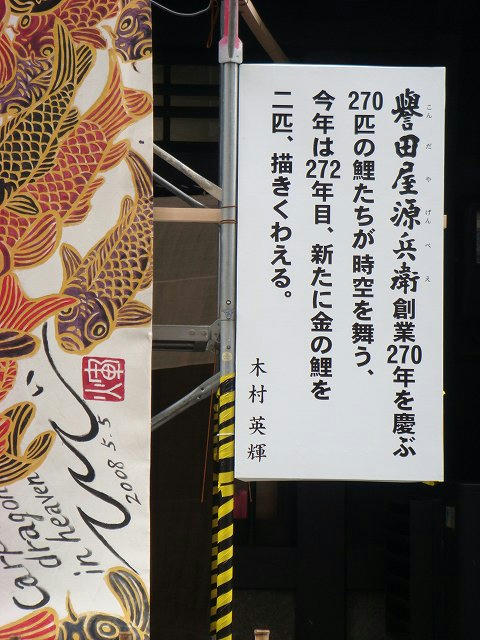 譽田屋源兵衛創業270年を慶ぶ
こんだやげんべえ
270匹の鯉たちが時空を舞う、
今年は272年目、新たに金の鯉を
二匹、描きくわえる。
木村英輝
2008 5.5
carp
dragon
in heaven